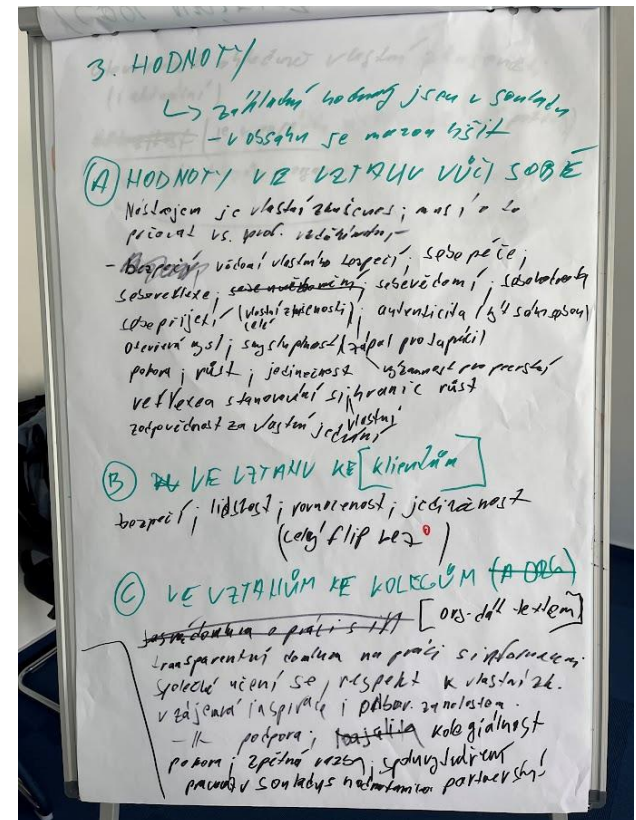 3. HODNOTY
↳ základní hodnoty jsou v souladu
- v obsahu se mohou lišit
(A) HODNOTY VE VZTAHU VŮČI SOBĚ
Nástrojem je vlastní zkušenost; musí o to
pečovat vs. prof.
- vědomí vlastního bezpečí; sebepéče;
sebereflexe; sebevědomí; sebehodnota
sebepřijetí (vlastní zkušenosti); autenticita (být sám sebou)
celé
otevřená mysl; smysluplnost (zápal pro la práci)
pokora; růst; jedinečnost významnost pro
reflexe a stanovování si hranic růst
vlastní
zodpovědnost za vlastní jednání
(B) VE VZTAHU KE [klientům]
bezpečí; lidskost; rovnocennost; jedinečnost
(celý flip bez )
(C) VE VZTAHŮM KE KOLEGŮM (A ORG)
[org. dát textem]
transparentní domluva na práci s informacemi
společné učení se; respekt k vlastní zk.
vzájemná inspirace i
- || - podpora; loajalita kolegiálnost
pokora; zpětná vazba; spolu
pracovat v souladu s hodnotami partnerství